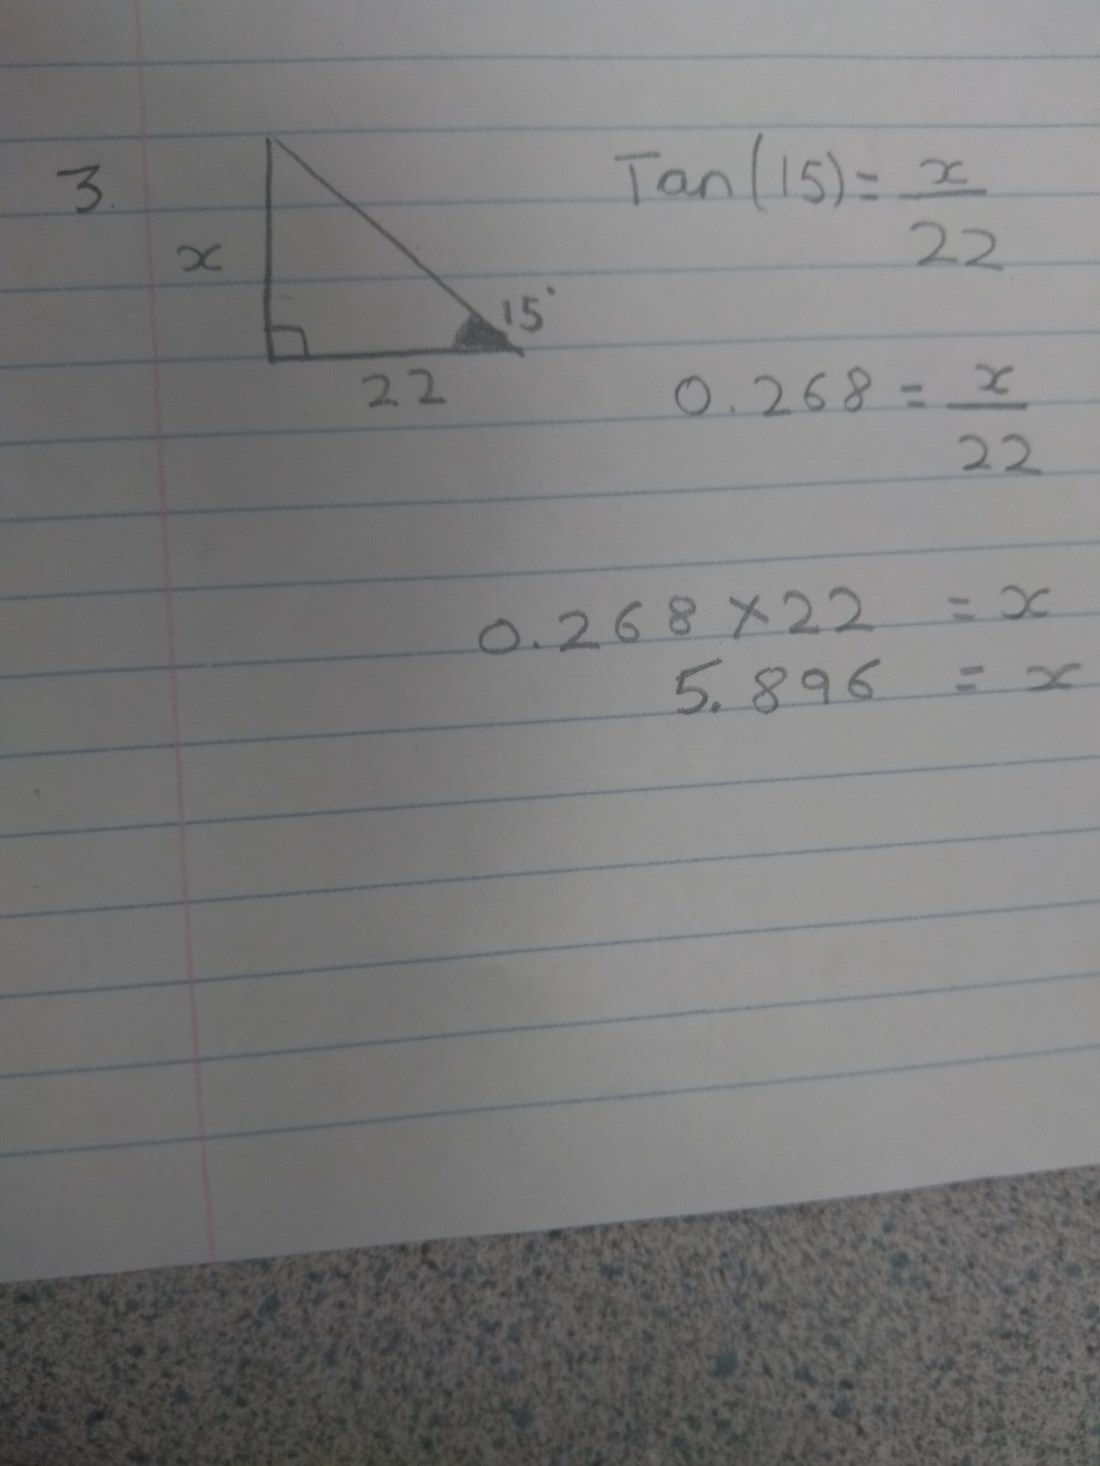 3.
x
15°
22
Tan(15) = x/22
0.268 = x/22
0.268 × 22 = x
5.896 = x